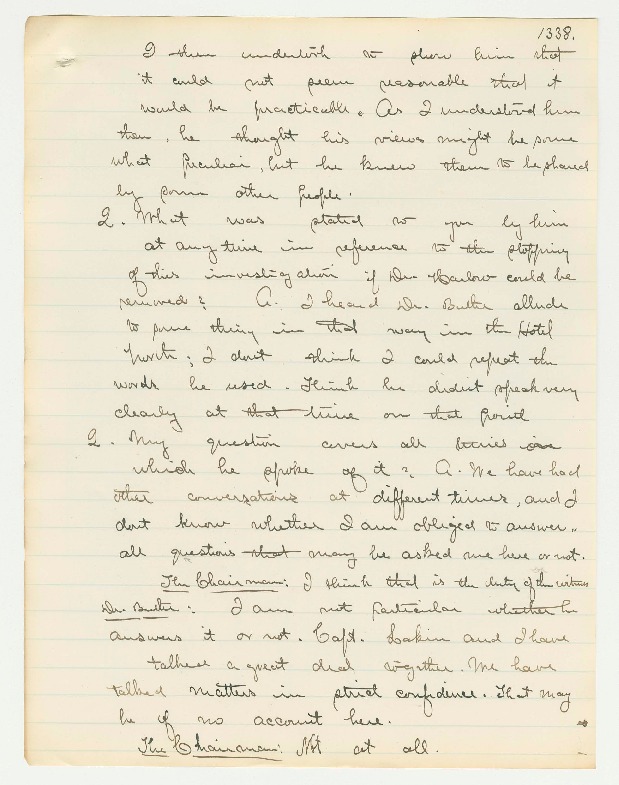 1338.
I then undertook to show him that
it could not seem reasonable that it
would be practicable. As I understood him
then, he thought his views might be some
what peculiar, but he knew them to be shared
by some other people.
Q. What was stated to you by him
at any time in reference to the stopping
of this investigation if Dr. Harlow could be
removed? A. I heard Dr. Butler allude
to some thing in that way in the Hotel
porch; I dont think I could repeat the
words he used. I think he didnt speak very
clearly at that time on that point
Q. My question covers all times in
which he spoke of it? A. We have had
other conversations at different times, and I
dont know whether I am obliged to answer
all questions that may be asked me here or not.
The Chairman: I think that is the duty of the witness
Dr. Butler: I am not particular whether he
answers it or not. Capt. Lakin and I have
talked a great deal together. We have
talked matters in strict confidence. That may
be of no account here.
The Chairman: Not at all.